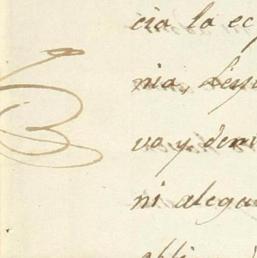 cia la ec
nia, Leye
va y dem
ni alega